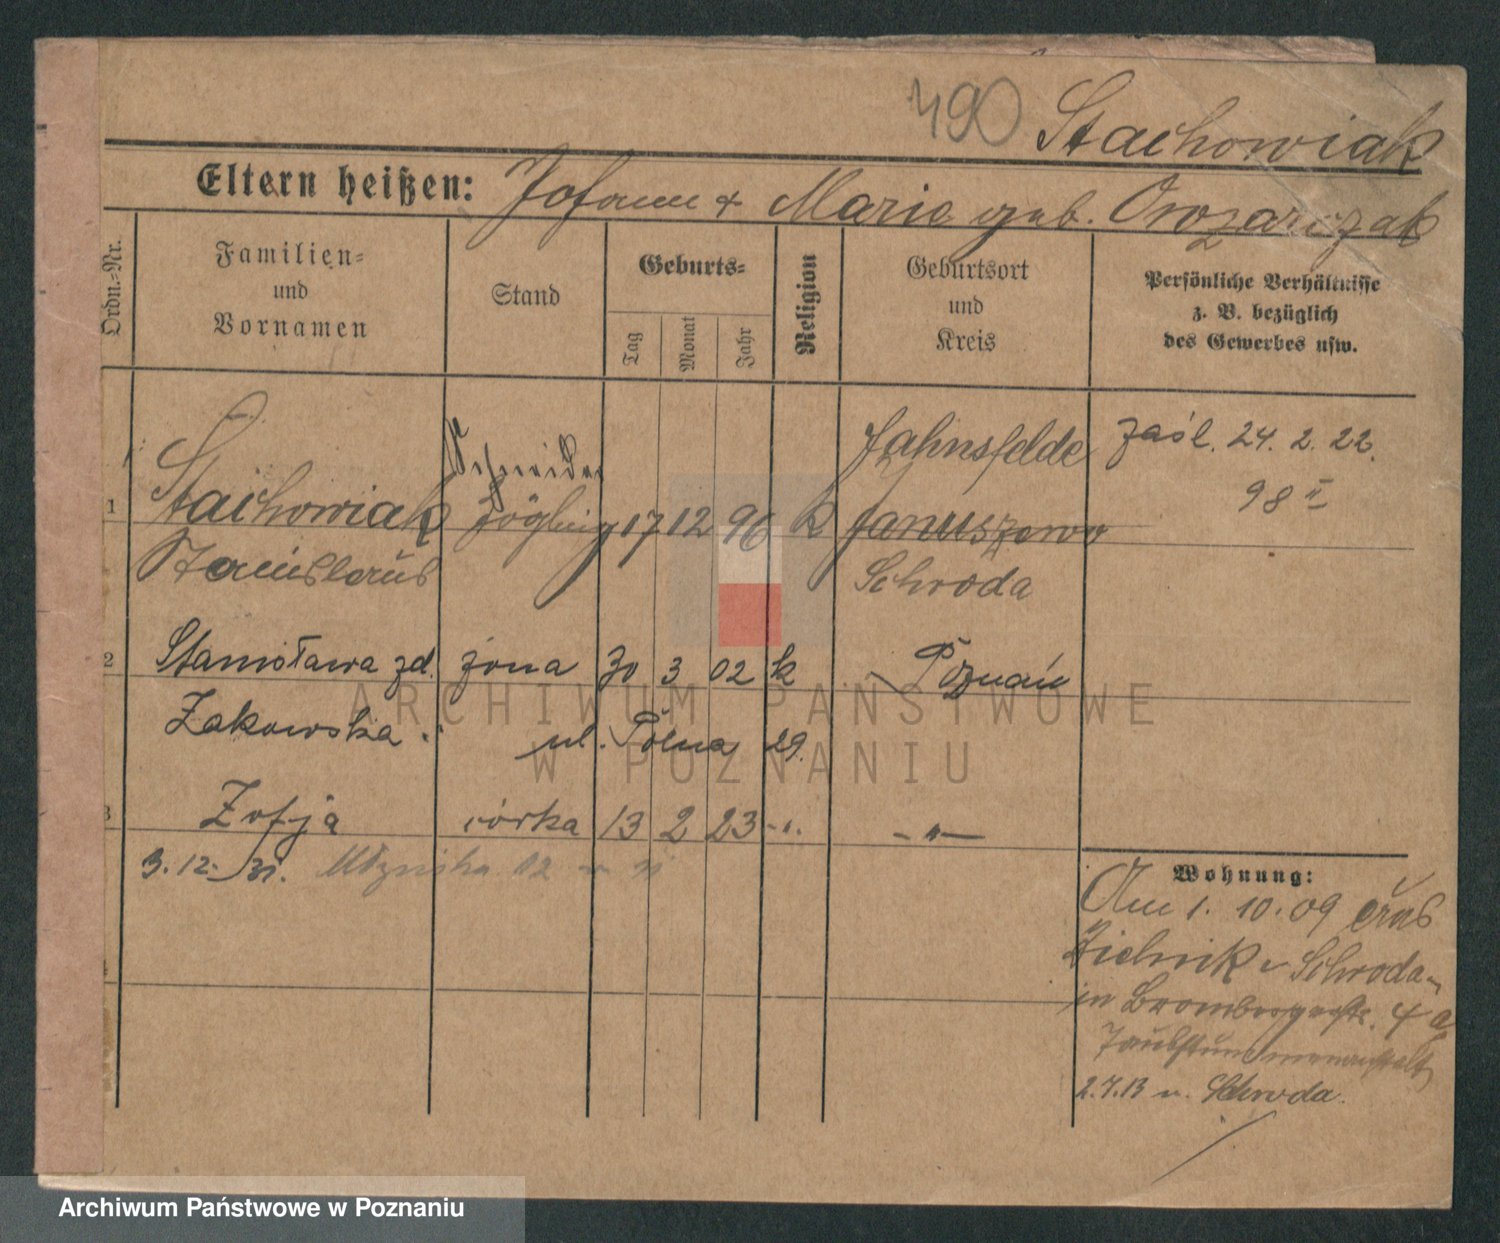 490 Stachowiak
Eltern heißen: Johann + Marie geb. Owczarczak
Ordn.-Nr.
Familien-
und
Vornamen
Stand
Geburts-
Tag
Monat
Jahr
Religion
Geburtsort
und
Kreis
Persönliche Verhältnisse
z. B. bezüglich
des Gewerbes usw.
Schneider
Jahnsfelde
zaśl. 24. 2. 22.
98 II
1 Stachowiak Zögling 17 12 96 k Januszewo
Stanislaus Schroda
2 Stanisława zd. żona 30 3 02 k Poznań
Żakowska. ul. Polna 29.
3 Zofja córka 13 2 23 -"- -"-
3. 12. 31. 12
Wohnung:
Am 1. 10. 09 aus
Zielnik Schroda
in Brombergerstr. 4a
Taubstummenanstalt
2.7.13 n. Schroda.
ARCHIWUM PAŃSTWOWE
W POZNANIU
Archiwum Państwowe w Poznaniu